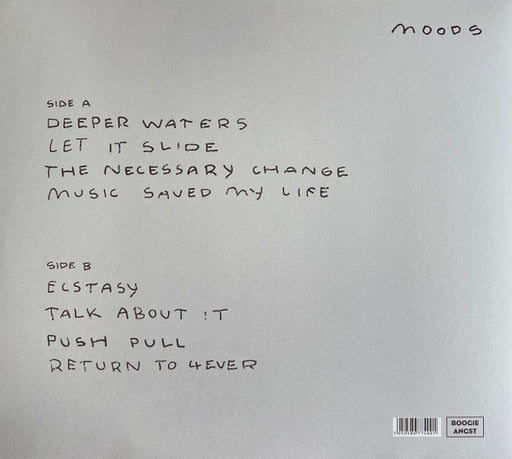 MOODS
SIDE A
DEEPER WATERS
LET IT SLIDE
THE NECESSARY CHANGE
MUSIC SAVED MY LIFE
SIDE B
ECSTASY
TALK ABOUT !T
PUSH PULL
RETURN TO 4EVER
BOOGIE
ANGST